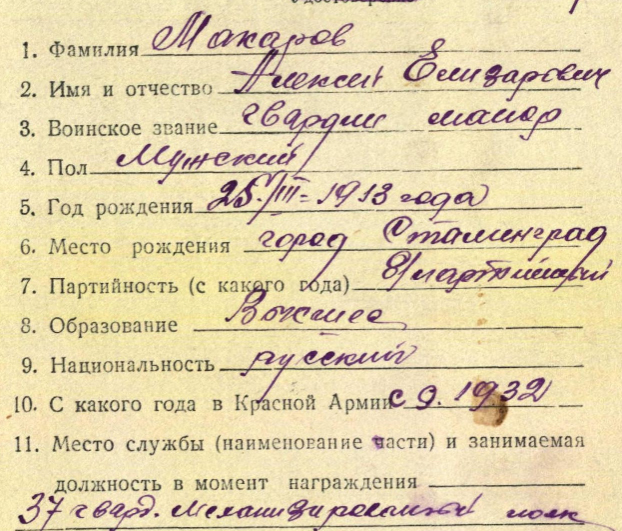 1. Фамилия Макаров
2. Имя и отчество Алексей Елизарович
3. Воинское звание гвардии майор
4. Пол Мужский
5. Год рождения 25/III = 1913 года
6. Место рождения город Сталинград
7. Партийность (с какого года) б/партийный
8. Образование Высшее
9. Национальность русский
10. С какого года в Красной Армии с 9. 1932
11. Место службы (наименование части) и занимаемая
должность в момент награждения
37 гвард. Механизированный полк